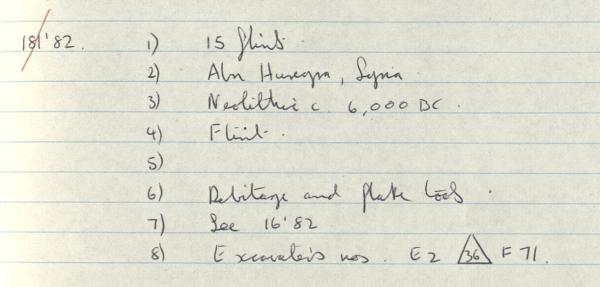 181'82. 1) 15 flint.
2) Abu Hureyra, Syria
3) Neolithic c. 6,000 BC.
4) Flint.
5)
6) Debitage and flake tools.
7) See 16'82
8) Excavator's nos. E2 36 F71.